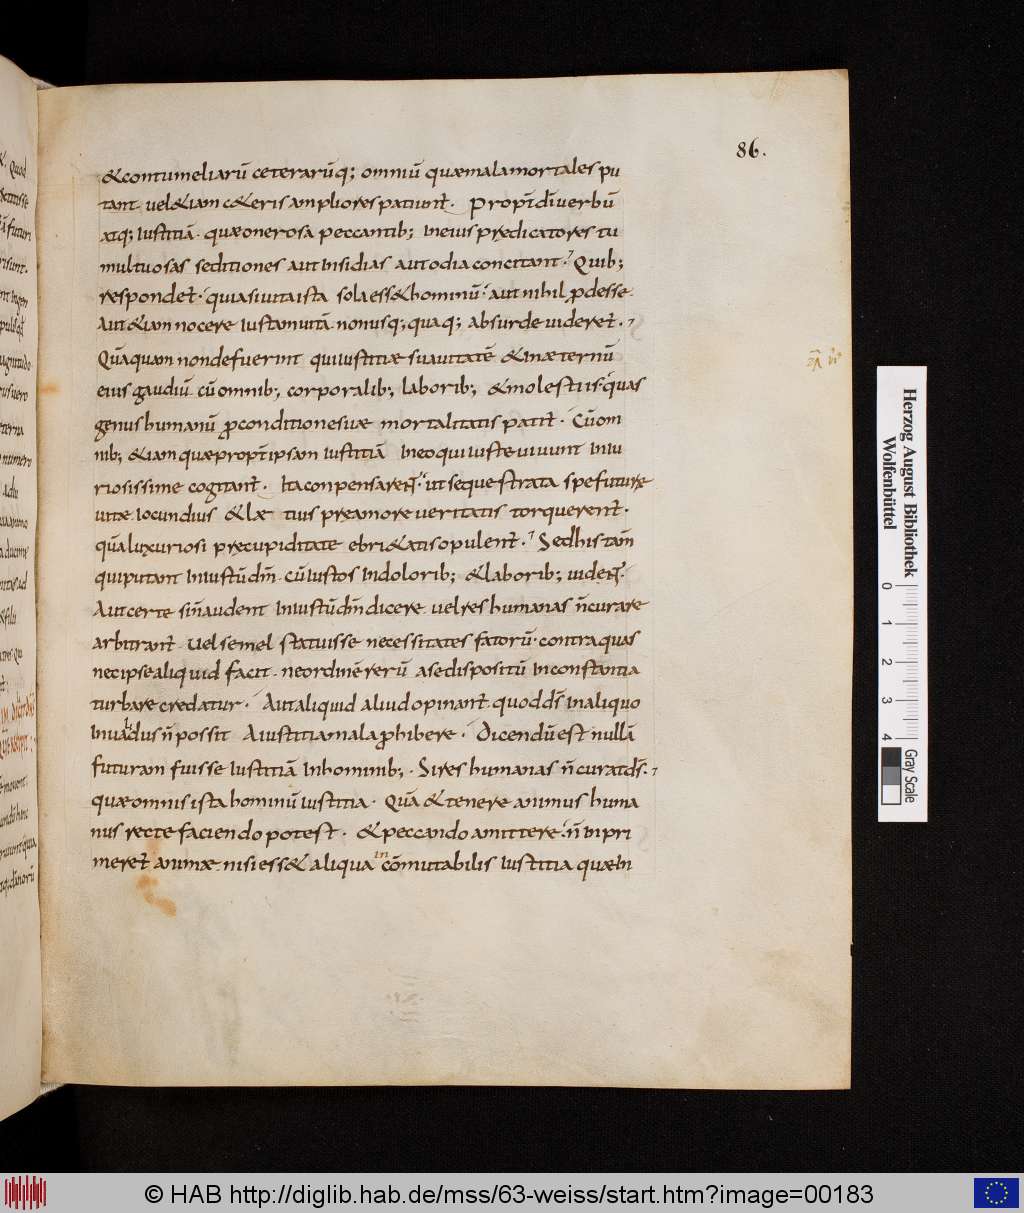 86.
&contumeliarū ceterarūq; omniū quæmalamortales pu
tant uel&iam c&eris ampliores patiunt̄. Propt̄ dīuerbū
atq; iustitiā quæonerosa peccantib; ineius prędicatores tu
multuosas seditiones aut insidias aut odia concitant. Quib;
respondet̄. quiasiuitaista solaess&hominū. aut nihil ꝓdesse
aut&iam nocere iustamuitā nonusq;quaq; absurde uideret̄.
Quāquam nondefuerint quiiustitiæ suauitatē &inæternū
eius gaudiū cūomnib; corporalib; laborib; &molestiis quas
genushumanū ꝓconditionesuæ mortalitatis patit̄. Cūom
nib; &iam quæpropt̄ipsam iustitiā ineoquiiusteuiuunt iniu
riosissime cogitant. Ita conpensarent̄. utsequestrata spefuturæ
uitæ iocundius &læ tius pręamoreueritatis torquerent̄.
quāluxuriosi pręcupiditate ebri&atisopulent̄. Sedhis tam̄
quiputant iniustūdm̄. cūiustos indolorib; &laborib; uident̄.
Aut certe sin̄audent iniustūdm̄dicere uelres humanas n̄curare
arbitrant̄ uelsemel statuisse necessitates fatorū. contraquas
necipsealiquid facit. neordinērerū asedispositū inconstantia
turbare credatur. Autaliquid aliudopinant̄ quodds̄ inaliquo
inualidusn̄possit Aiustitiamalaꝓhibere. Dicendūest nullā
futuram fuisse iustitiā inhominib;. Sires humanas n̄curatds̄.
quæomnis ista hominū iustitia. Quā &tenere animus huma
nus recte faciendo potest. &peccando amittere. n̄ inpri
meret̄ animæ. nisiess& aliqua in cōmutabilis iustitia quæin
Herzog August Bibliothek
Wolfenbüttel
0 1 2 3 4
Gray Scale
© HAB http://diglib.hab.de/mss/63-weiss/start.htm?image=00183